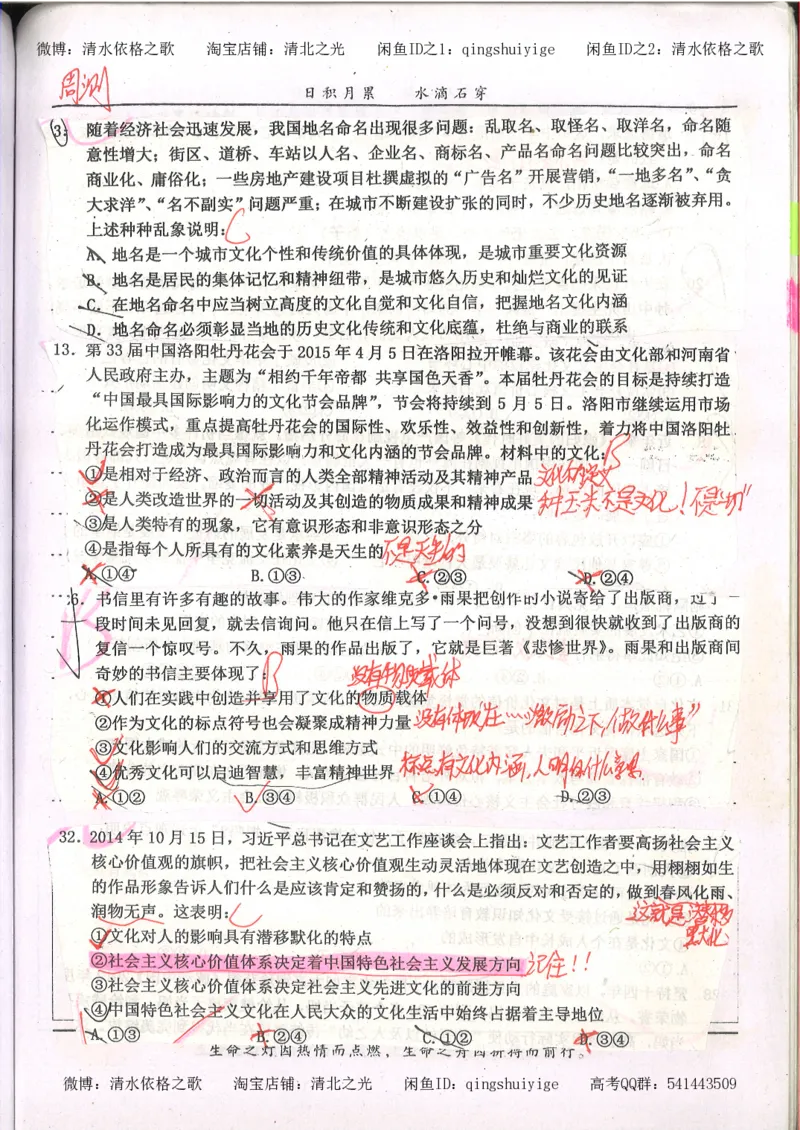 微博：清水依格之歌 淘宝店铺：清北之光 闲鱼ID之1：qingshuiyige 闲鱼ID之2：清水依格之歌
周测
日积月累 水滴石穿
3. 随着经济社会迅速发展，我国地名命名出现很多问题：乱取名、取怪名、取洋名，命名随
意性增大；街区、道桥、车站以人名、企业名、商标名、产品名命名问题比较突出，命名
商业化、庸俗化；一些房地产建设项目杜撰虚拟的“广告名”开展营销，“一地多名”、“贪
大求洋”、“名不副实”问题严重；在城市不断建设扩张的同时，不少历史地名逐渐被弃用。
上述种种乱象说明：C
A. 地名是一个城市文化个性和传统价值的具体体现，是城市重要文化资源
B. 地名是居民的集体记忆和精神纽带，是城市悠久历史和灿烂文化的见证
C. 在地名命名中应当树立高度的文化自觉和文化自信，把握地名文化内涵
D. 地名命名必须彰显当地的历史文化传统和文化底蕴，杜绝与商业的联系
13. 第 33 届中国洛阳牡丹花会于 2015 年 4 月 5 日在洛阳拉开帷幕。该花会由文化部和河南省
人民政府主办，主题为“相约千年帝都 共享国色天香”。本届牡丹花会的目标是持续打造
“中国最具国际影响力的文化节会品牌”，节会将持续到 5 月 5 日。洛阳市继续运用市场
化运作模式，重点提高牡丹花会的国际性、欢乐性、效益性和创新性，着力将中国洛阳牡
丹花会打造成为最具国际影响力和文化内涵的节会品牌。材料中的文化：B
①是相对于经济、政治而言的人类全部精神活动及其精神产品 文化的含义
②是人类改造世界的一切活动及其创造的物质成果和精神成果 种玉米不是文化！不是“一切”
③是人类特有的现象，它有意识形态和非意识形态之分
④是指每个人所具有的文化素养是天生的 不是天生的
A. ①④ B. ①③ C. ②③ D. ②④
6. 书信里有许多有趣的故事。伟大的作家维克多·雨果把创作的小说寄给了出版商，过了一
段时间未见回复，就去信询问。他只在信上写了一个问号，没想到很快就收到了出版商的
复信一个惊叹号。不久，雨果的作品出版了，它就是巨著《悲惨世界》。雨果和出版商间
奇妙的书信主要体现了：B 没有物质载体
①人们在实践中创造并享用了文化的物质载体
②作为文化的标点符号也会凝聚成精神力量 没有体现“在……激励之下，做什么事”
③文化影响人们的交流方式和思维方式
④优秀文化可以启迪智慧，丰富精神世界 标点有文化内涵，人明白什么意思
A. ①② B. ③④ C. ①④ D. ②③
32. 2014 年 10 月 15 日，习近平总书记在文艺工作座谈会上指出：文艺工作者要高扬社会主义
核心价值观的旗帜，把社会主义核心价值观生动灵活地体现在文艺创造之中，用栩栩如生
的作品形象告诉人们什么是应该肯定和赞扬的，什么是必须反对和否定的，做到春风化雨、
润物无声。这表明： 这就是潜移
默化
①文化对人的影响具有潜移默化的特点
②社会主义核心价值体系决定着中国特色社会主义发展方向 记住！！
③社会主义核心价值体系决定社会主义先进文化的前进方向
④中国特色社会主义文化在人民大众的文化生活中始终占据着主导地位
A. ①③ B. ②④ C. ①② D. ③④
生命之灯因热情而点燃，生命之舟因拼搏而前行。
微博：清水依格之歌 淘宝店铺：清北之光 闲鱼ID：qingshuiyige 高考QQ群：541443509